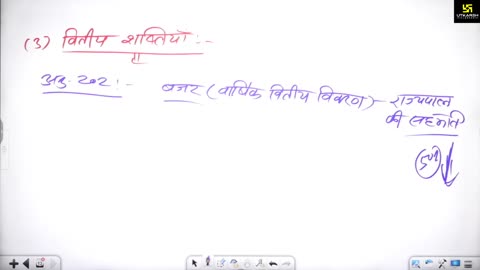 (3) वितीय शक्तियाँ :-
अनु. 202 :- बजट (वार्षिक वितीय विवरण) - राज्यपाल
की सहमति
UTKARSH